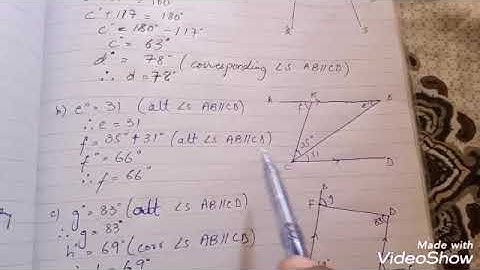 c° + 117 = 180°
c° = 180° - 117°
c° = 63°
d° = 78° (corresponding ∠s AB//CD)
∴ d = 78°
b) e° = 31 (alt ∠s AB//CD)
∴ e = 31
f = 35° + 31° (alt ∠s AB//CD)
f° = 66°
∴ f = 66°
c) g° = 83° (alt ∠s AB//CD)
∴ g = 83°
h° = 69° (corr ∠s AB//CD)
69°
A
B
35°
31
C
D
B
F
g
D
Made with
VideoShow